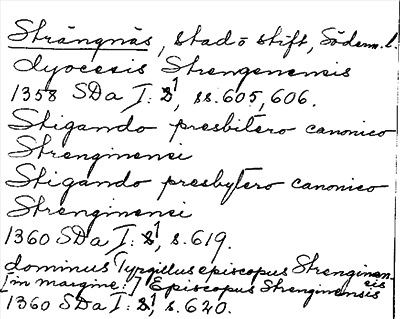 Strängnäs, stad o stift, Söderm. l.
dyocesis Strengenensis
1358 SDa I: 1, ss. 605, 606.
Stigando presbitero canonico
Strenginenei
Stigando presbytero canonico
Strenginenei
1360 SDa I: 1, s. 619.
dominus Tyrgillus episcopus Strenginen-
sis
[in margine:] Episcopus Strenginensis
1360 SDa I: 1, s. 620.